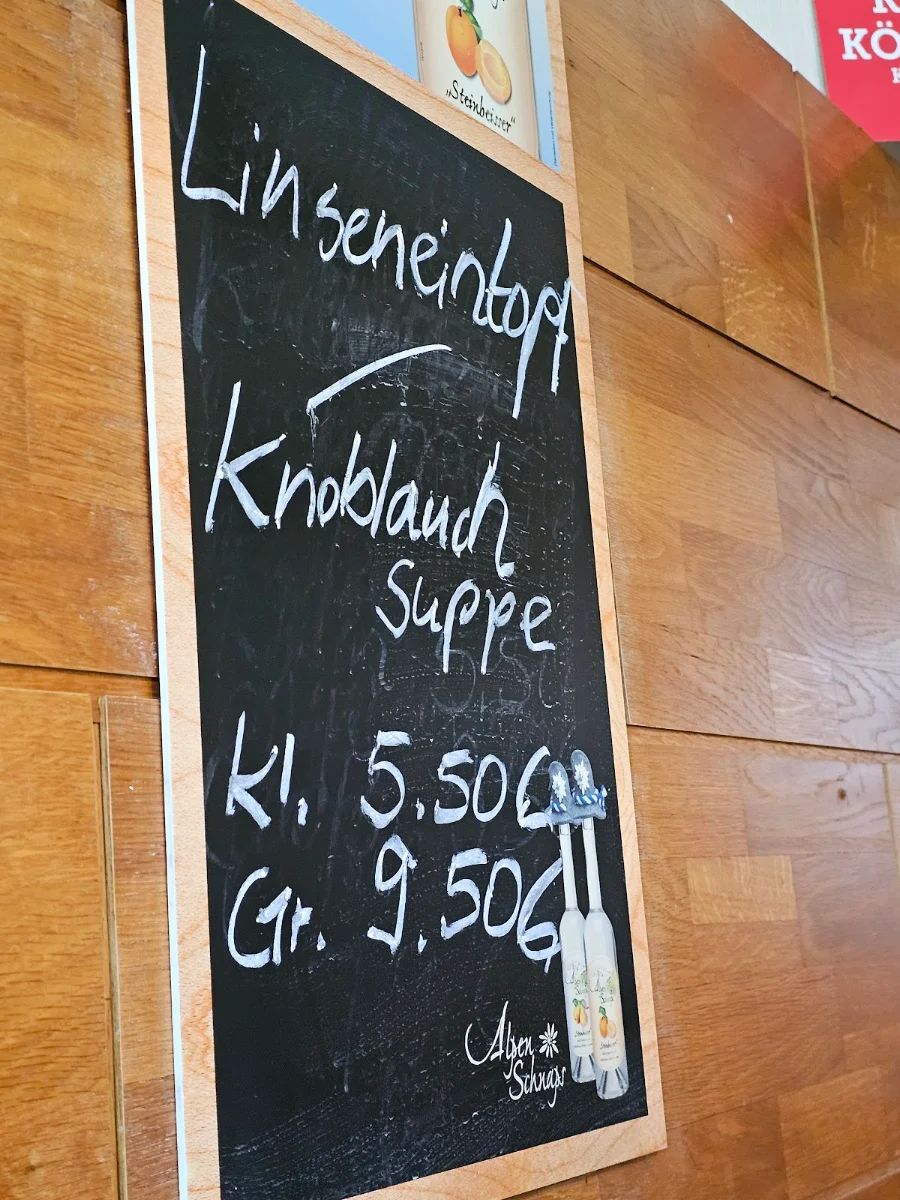 „Steinbeisser“
KÖ
Linseneintopf
Knoblauch
Suppe
kl. 5.50€
Gr. 9.50€
Alpen
Schnaps